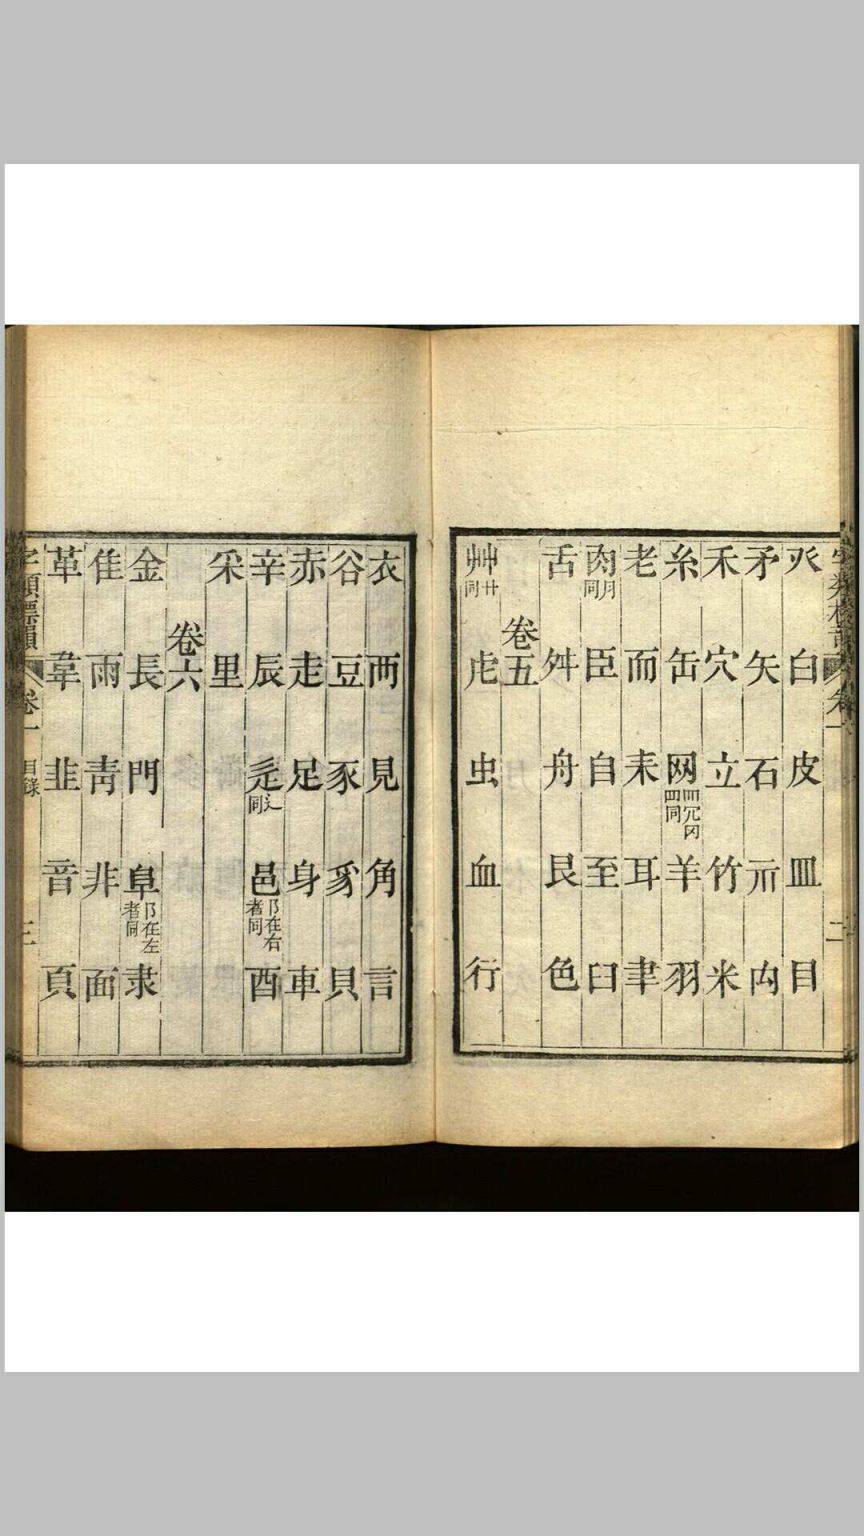 癶 白 皮 皿 目
矛 矢 石 示 禸
禾 穴 立 竹 米
糸 缶 网 罒𦉰罓四同 羊 羽
老 而 耒 耳 聿
肉 月同 臣 自 至 臼
舌 舛 舟 艮 色
卷五
艸 卄同 虍 虫 血 行
衣 襾 見 角 言
谷 豆 豕 豸 貝
赤 走 足 身 車
辛 辰 辵 辶同 邑 阝在右者同 酉
釆 里
卷六
金 長 門 阜 阝在左者同 隶
隹 雨 靑 非 面
革 韋 韭 音 頁
字類標韻 卷一 目錄 三